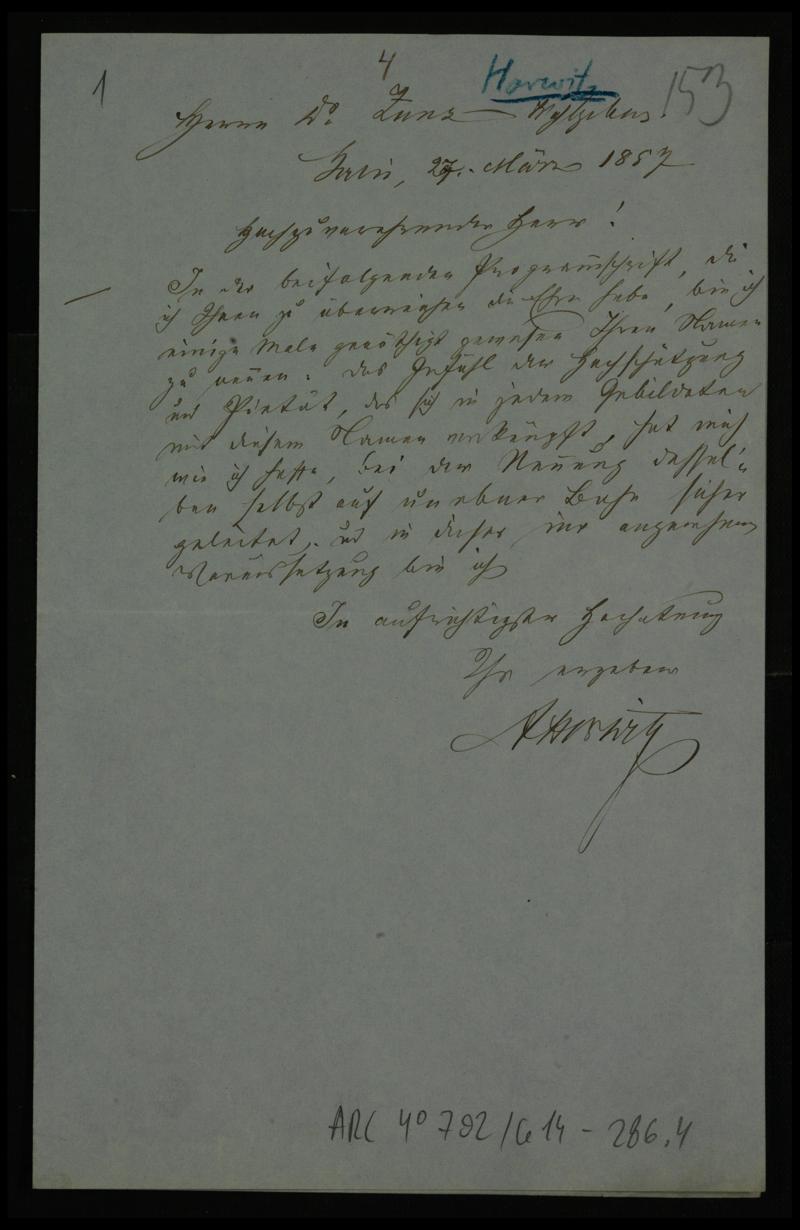 1
4
Horwitz
153
Herrn Dr Zunz Wohlgeboren.
Berlin, 27. März 1857
Hochzuverehrender Herr!
In der beifolgenden Programmschrift, die
ich Ihnen zu überreichen die Ehre habe, bin ich
einige Male genöthigt gewesen Ihren Namen
zu nennen: das Gefühl der Hochschätzung
und Pietät, das sich in jedem Gebildeten
mit diesem Namen verknüpft, hat mich
wie ich hoffe, bei der Nennung dessel-
ben selbst auf unebner Bahn sicher
geleitet, und in dieser mir angenehmen
Voraussetzung bin ich
In aufrichtigster Hochachtung
Ihr ergebener
AHorwitz
ARC 4° 792/G14-286.4